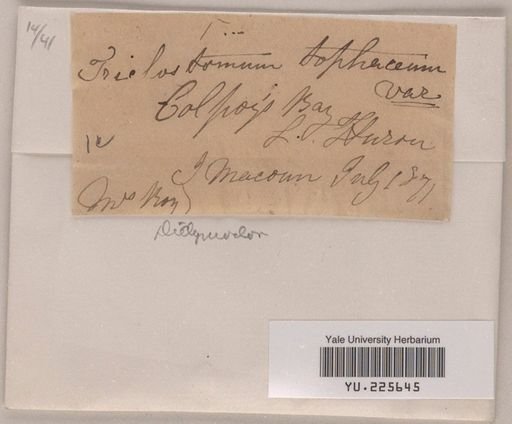 14/41
Triclostomum tophaceum
var
Colpoy's Bay
L. Huron
J Macoun July 1871
Mrs Roy
Didymodon
Yale University Herbarium
YU.225645